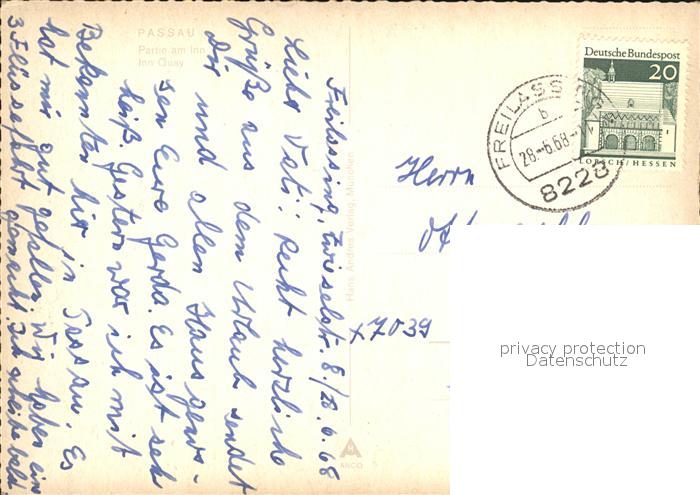 PASSAU
Partie am Inn
Inn Quay
Freilassing, 28.6.68
Lieber Vati! Recht herzliche
Grüße aus dem Urlaub sendet
Dir und allen Hausgenos-
sen Eure Gerda. Es ist sehr
heiß. Gestern war ich mit
Bekannten hir in Passau. Es
hat mir gut gefallen. Wir haben eine
3 Flüssefahrt gemacht. Ich schreibe bald
Hans Andres Verlag, München
ANCO
Deutsche Bundespost
20
LORSCH/HESSEN
FREILASS
b
28.-6.68-
8228
Herrn
x7039
privacy protection
Datenschutz